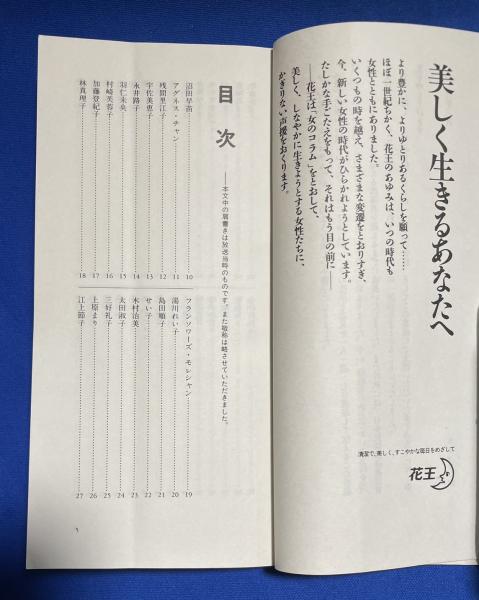 美しく生きるあなたへ
より豊かに、よりゆとりあるくらしを願って……
ほぼ一世紀ちかく、花王のあゆみは、いつの時代も
女性とともにありました。
いくつもの時を越え、さまざまな変遷をとおりすぎ、
今、新しい女性の時代がひらかれようとしています。
たしかな手ごたえをもって、それはもう目の前に──
──花王は、“女のコラム”をとおして、
美しく、しなやかに生きようとする女性たちに、
かぎりない声援をおくります。
清潔で、美しく、すこやかな毎日をめざして
花王
目次
──本文中の肩書きは放送当時のものです。また敬称は略させていただきました。
沼田早苗 10
アグネス・チャン 11
残間里江子 12
宇佐美恵子 13
永井路子 14
羽仁未央 15
村崎芙蓉子 16
加藤登紀子 17
林真理子 18
フランソワーズ・モレシャン 19
湯川れい子 20
島田順子 21
せい子 22
木村治美 23
太田淑子 24
三好礼子 25
上原まり 26
江上節子 27
1